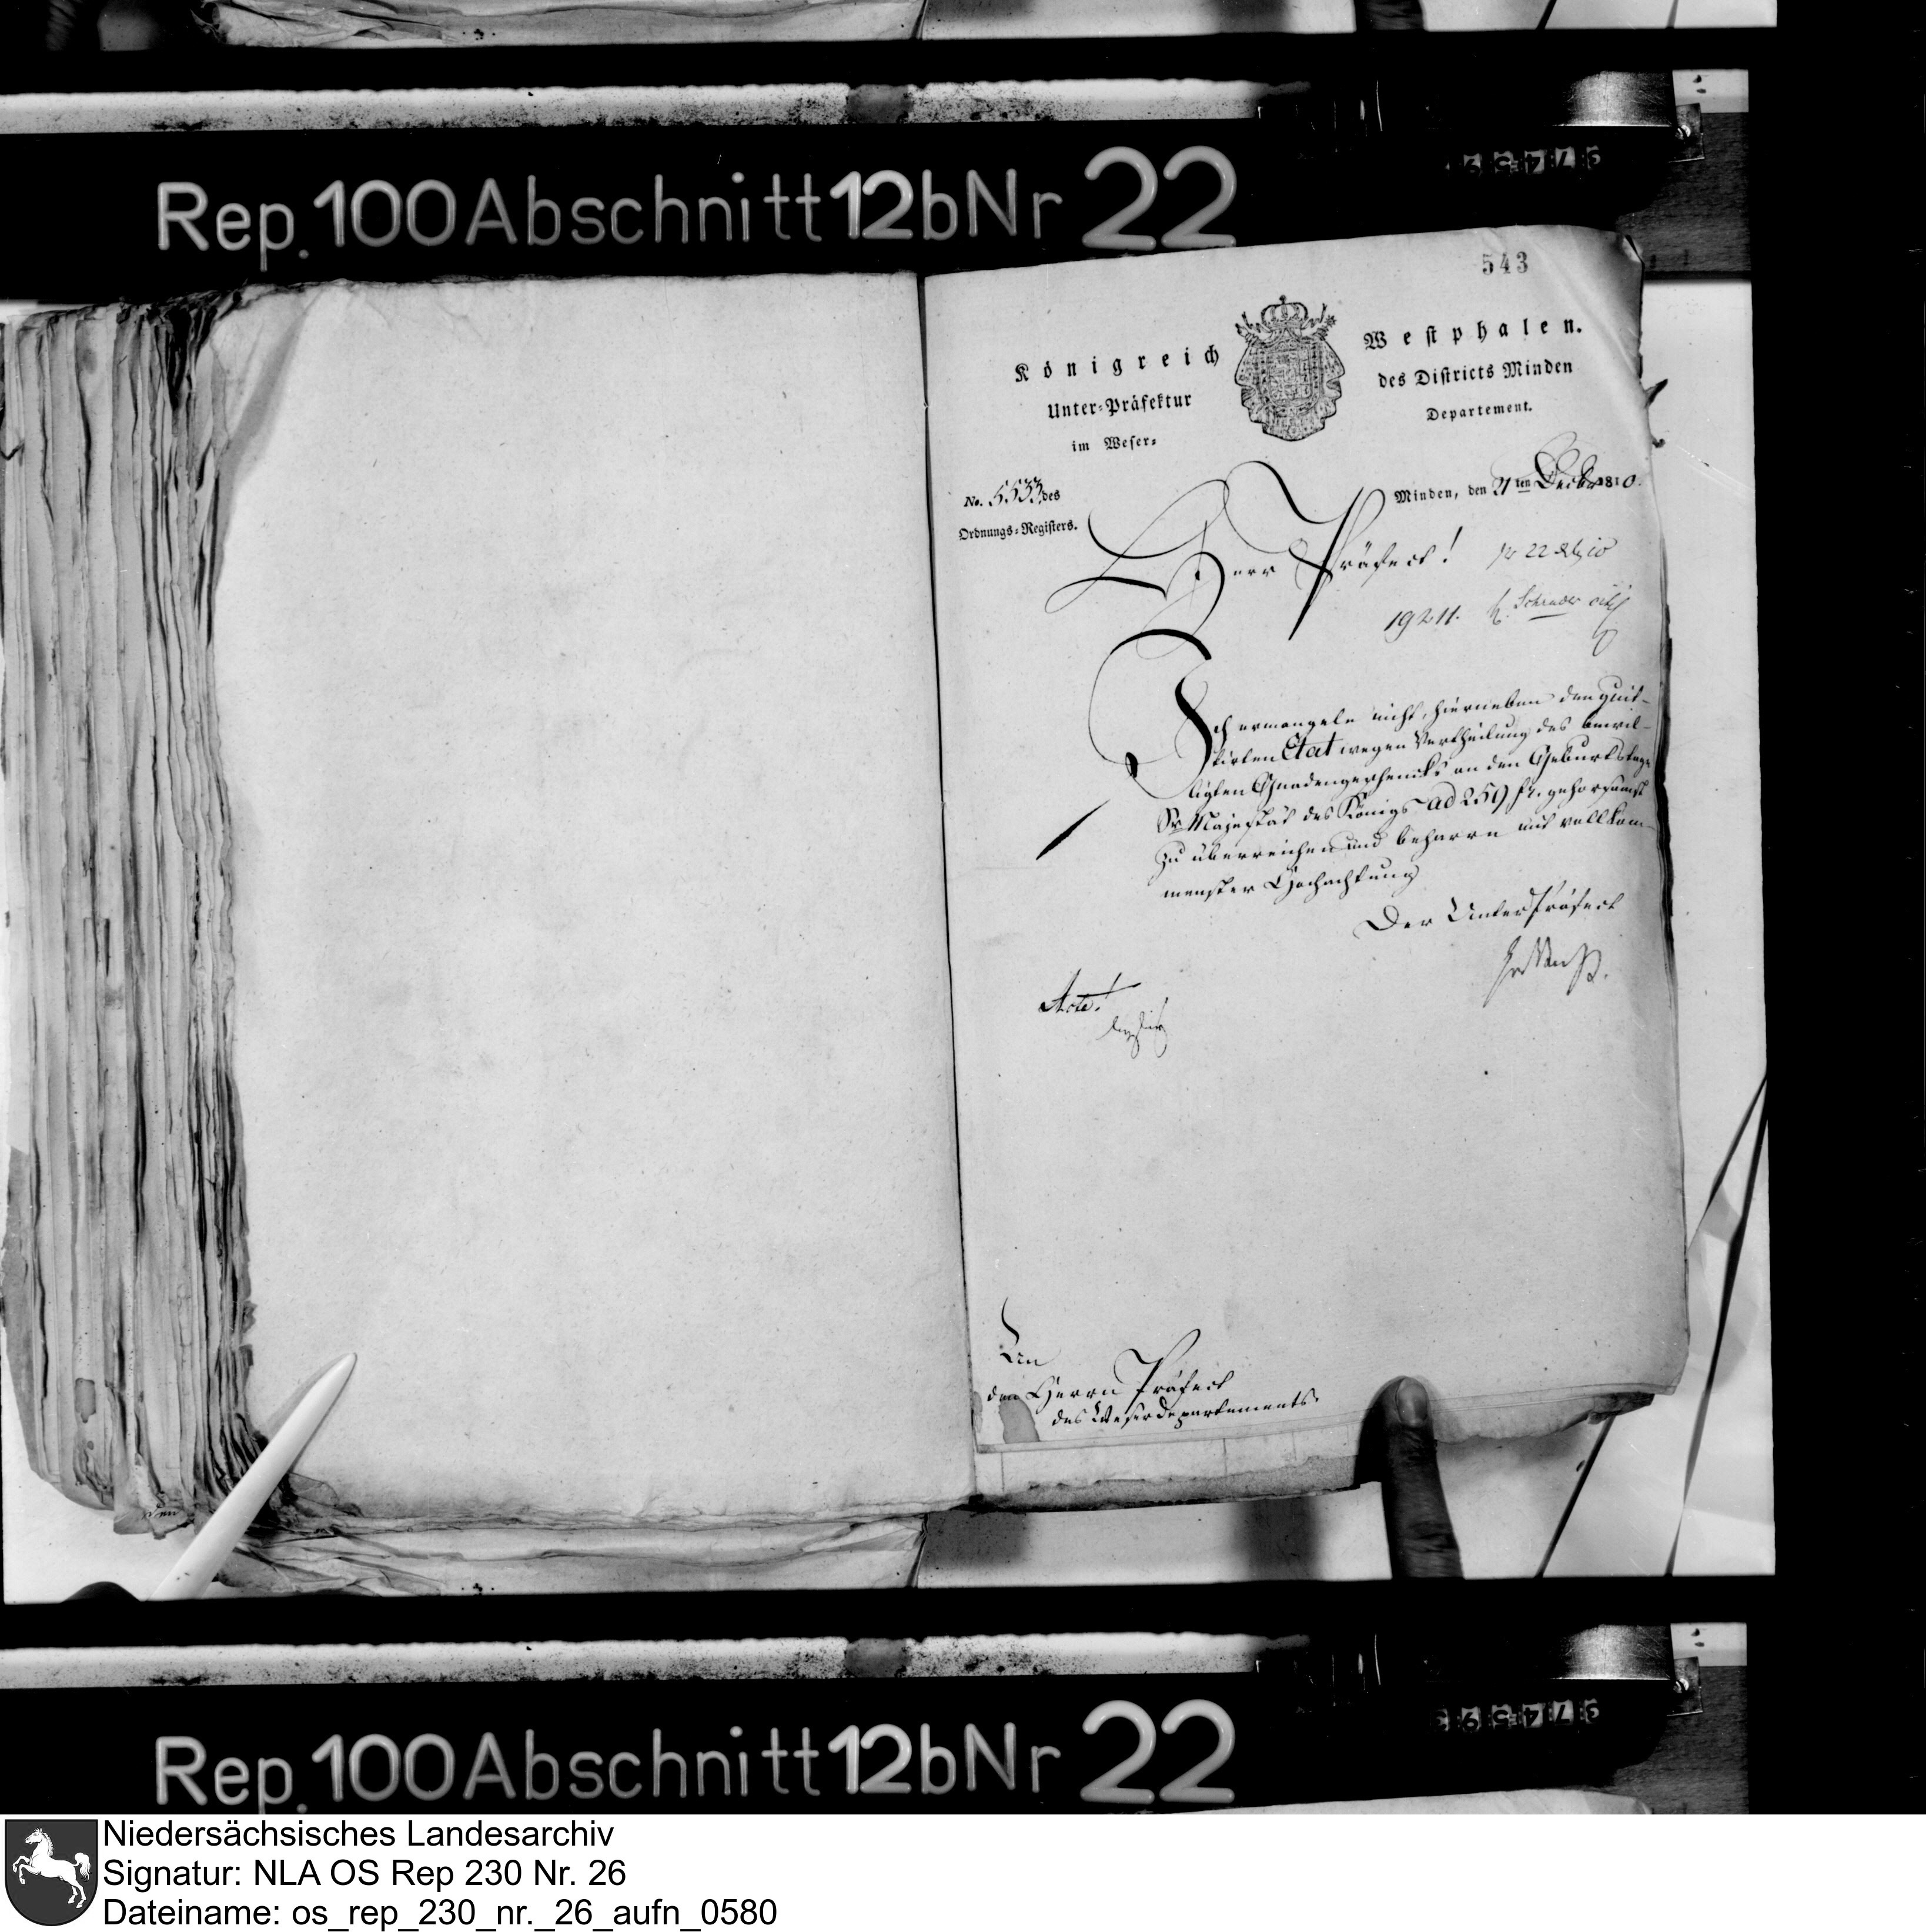 Rep. 100 Abschnitt 12b Nr 22
543
Königreich Westphalen.
Unter-Präfektur des Districts Minden
im Weser- Departement.
No. 5533 des
Ordnungs-Registers.
Minden, den 21ten Decbr 1810.
Herr Präfect!
19211. Schrader
Ich ermangele nicht, hierneben den quit-
tirten Etat wegen Vertheilung des bewil-
ligten Gnadengeschenks an den Geburtstage
Sr Majestät des Königs ad 259 fr. gehorsamst
zu überreichen und beharre mit vollkom-
menster Hochachtung
Der UnterPräfect
Acte!
An
den Herrn Präfect
des Weserdepartements.
Rep. 100 Abschnitt 12b Nr 22
Niedersächsisches Landesarchiv
Signatur: NLA OS Rep 230 Nr. 26
Dateiname: os_rep_230_nr._26_aufn_0580